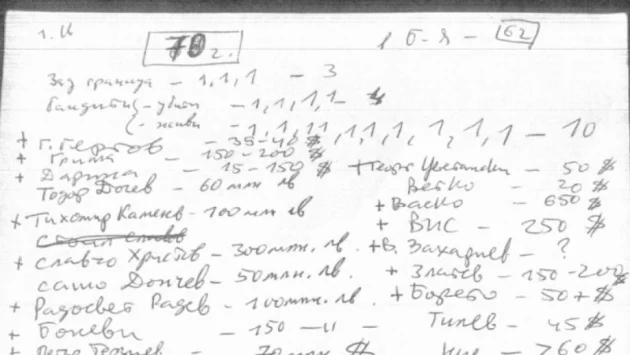 1. И
70 г. 1 Б-Я - 62
Зад граница - 1,1,1 - 3
бандити - убити - 1,1,1,1 -
- живи - 1,1,1,1,1,1,1,1,1,1 - 10
+ Г. Гергов - 35-40 $
+ Гриша - 150-200 $
+ Дариша - 15-150 $
Тодор Дочев - 60 млн лв
+ Тихомир Каменов - 100 млн лв
+ Славчо Христов - 300 млн. лв.
Сашо Дончев - 50 млн. лв.
+ Радосвет Радев - 100 млн. лв.
+ Боневи - 150 -и-
+ Петър 70 млн $
+ Георг - 50 $
Ветко - 20 $
+ Васко - 650 $
+ ВИС - 250 $
+ В. Захариев - ?
+ Златев - 150-200 $
+ Борето - 50 + $
Тилев - 45 $
> 60 $